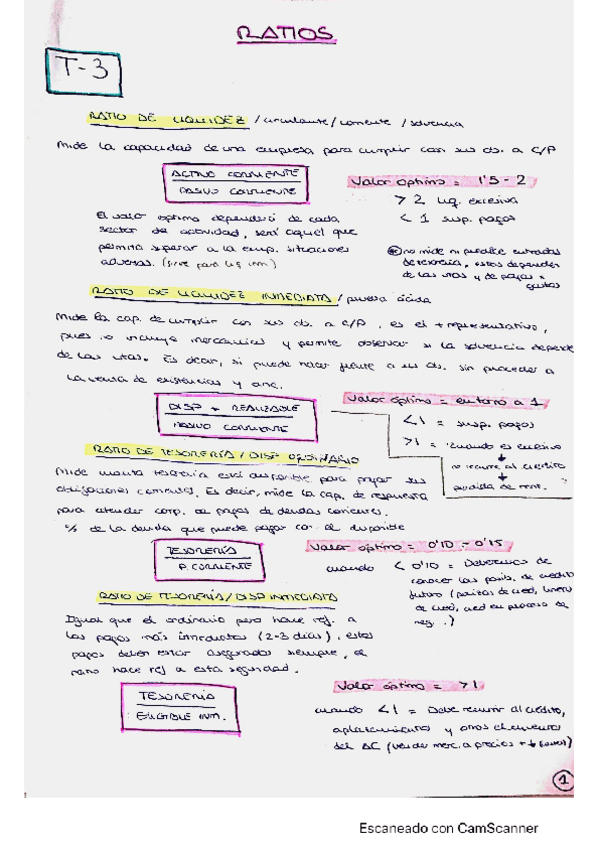 RATIOS
T-3
RATIO DE LIQUIDEZ / circulante / corriente / solvencia
Mide la capacidad de una empresa para cumplir con sus ob. a C/P
ACTIVO CORRIENTE
PASIVO CORRIENTE
Valor óptimo = 1'5 - 2
> 2 liq. excesiva
< 1 susp. pagos
El valor óptimo dependerá de cada
sector de actividad, será aquel que
permita superar a la emp. situaciones
adversas. (sirve para liq inm)
no mide ni predice entradas
de tesorería, estas dependen
de las vtas y de pagos x
gastos
RATIO DE LIQUIDEZ INMEDIATA / prueba ácida
Mide la cap. de cumplir con sus ob. a C/P, es el + representativo,
pues no incluye mercancías y permite observar si la solvencia depende
de las vtas. Es decir, si puede hacer frente a sus ob. sin proceder a
la venta de existencias y anc.
DISP + REALIZABLE
PASIVO CORRIENTE
Valor óptimo = entorno a 1
<1 = susp. pagos
>1 = cuando es excesivo
no recurre al crédito
perdida de rent.
RATIO DE TESORERÍA / DISP ORDINARIO
Mide cuanta tesorería está disponible para pagar sus
obligaciones corrientes. Es decir, mide la cap. de respuesta
para atender comp. de pagos de deudas corrientes.
% de la deuda que puede pagar con el disponible
TESORERÍA
P. CORRIENTE
Valor óptimo = 0'10 - 0'15
cuando < 0'10 = Deberemos de
conocer las posib. de crédito
futuro (polizas de cred, lineas
de cred, cred en proceso de
neg.)
RATIO DE TESORERÍA / DISP INMEDIATA
Igual que el ordinario pero hace ref. a
los pagos más inmediatos (2-3 días), estos
pagos deben estar asegurados siempre, el
ratio hace ref a esta seguridad.
TESORERÍA
EXIGIBLE INM.
Valor óptimo = >1
cuando <1 = Debe recurrir al crédito,
aplazamientos y otros elementos
del AC (vender merc. a precios + ↓)
1
Escaneado con CamScanner